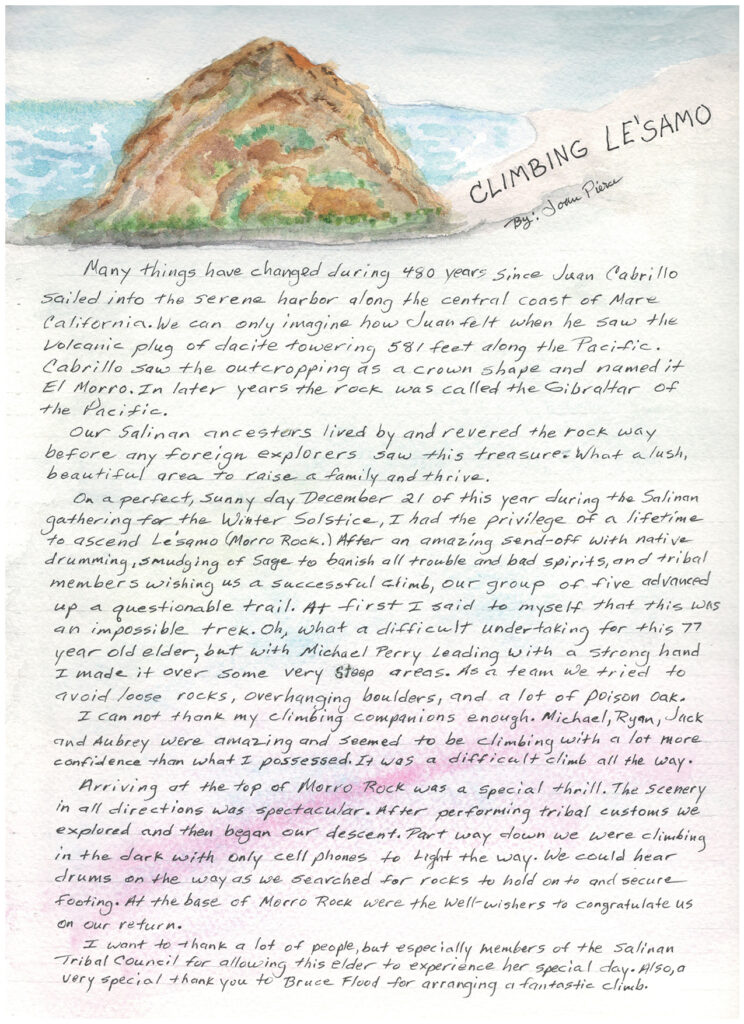 CLIMBING LE'SAMO
By: Joan Pierce
Many things have changed during 480 years since Juan Cabrillo
sailed into the serene harbor along the central coast of Mare
California. We can only imagine how Juan felt when he saw the
volcanic plug of dacite towering 581 feet along the Pacific.
Cabrillo saw the outcropping as a crown shape and named it
El Morro. In later years the rock was called the Gibraltar of
the Pacific.
Our Salinan ancestors lived by and revered the rock way
before any foreign explorers saw this treasure. What a lush,
beautiful area to raise a family and thrive.
On a perfect, sunny day December 21 of this year during the Salinan
gathering for the Winter Solstice, I had the privilege of a lifetime
to ascend Le'samo (Morro Rock.) After an amazing send-off with native
drumming, smudging of Sage to banish all trouble and bad spirits, and tribal
members wishing us a successful climb, our group of five advanced
up a questionable trail. At first I said to myself that this was
an impossible trek. Oh, what a difficult undertaking for this 77
year old elder, but with Michael Perry Leading with a strong hand
I made it over some very steep areas. As a team we tried to
avoid loose rocks, overhanging boulders, and a lot of poison oak.
I can not thank my climbing companions enough. Michael, Ryan, Jack
and Aubrey were amazing and seemed to be climbing with a lot more
confidence than what I possessed. It was a difficult climb all the way.
Arriving at the top of Morro Rock was a special thrill. The scenery
in all directions was spectacular. After performing tribal customs we
explored and then began our descent. Part way down we were climbing
in the dark with only cell phones to Light the way. We could hear
drums on the way as we searched for rocks to hold on to and secure
footing. At the base of Morro Rock were the well-wishers to congratulate us
on our return.
I want to thank a lot of people, but especially members of the Salinan
Tribal Council for allowing this elder to experience her special day. Also, a
very special thank you to Bruce Flood for arranging a fantastic climb.